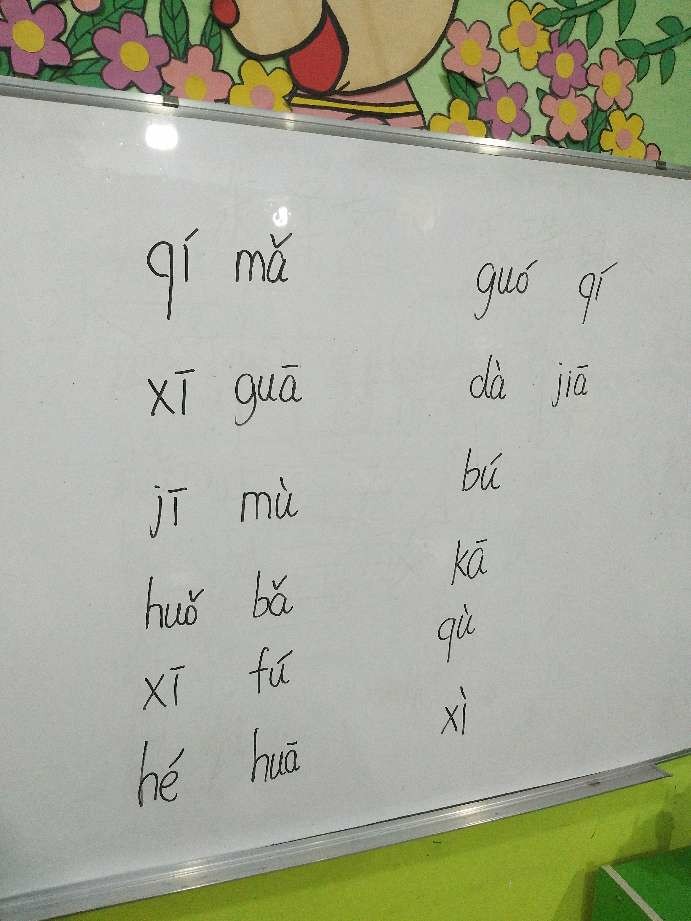 qí mǎ
xī guā
jī mù
huǒ bǎ
xī fú
hé huā
guó qí
dà jiā
bú
kā
qù
xì